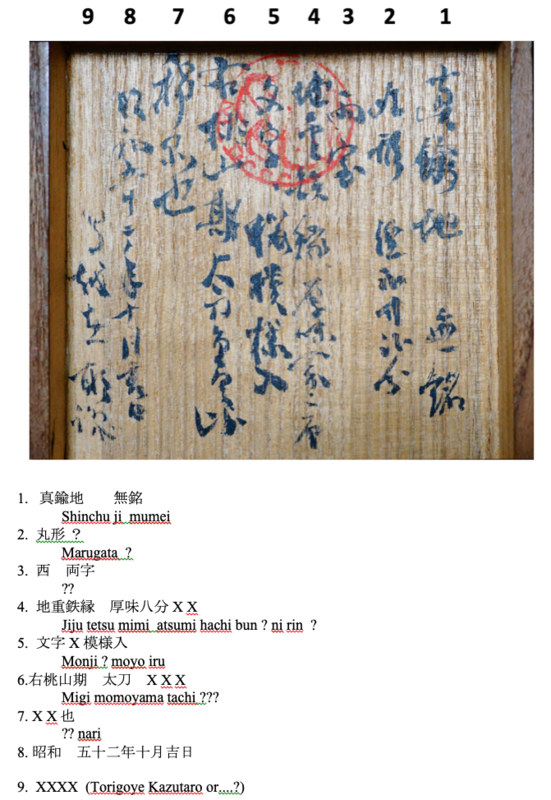 9 8 7 6 5 4 3 2 1
真鍮地 無銘
丸形
地
縁 厚味
模様入
右桃山期 太刀
也
昭和五十二年十月吉日
1. 真鍮地 無銘
Shinchu ji mumei
2. 丸形 ?
Marugata ?
3. 西 両字
??
4. 地重鉄縁 厚味八分 X X
Jiju tetsu mimi atsumi hachi bun ? ni rin ?
5. 文字 X 模様入
Monji ? moyo iru
6.右桃山期 太刀 X X X
Migi momoyama tachi ???
7. X X 也
?? nari
8. 昭和 五十二年十月吉日
9. XXXX (Torigoye Kazutaro or....?)